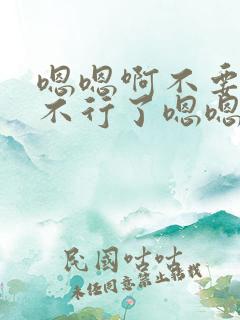 嗯嗯啊不要
不行了嗯嗯
民国咕咕
未经同意禁止转载